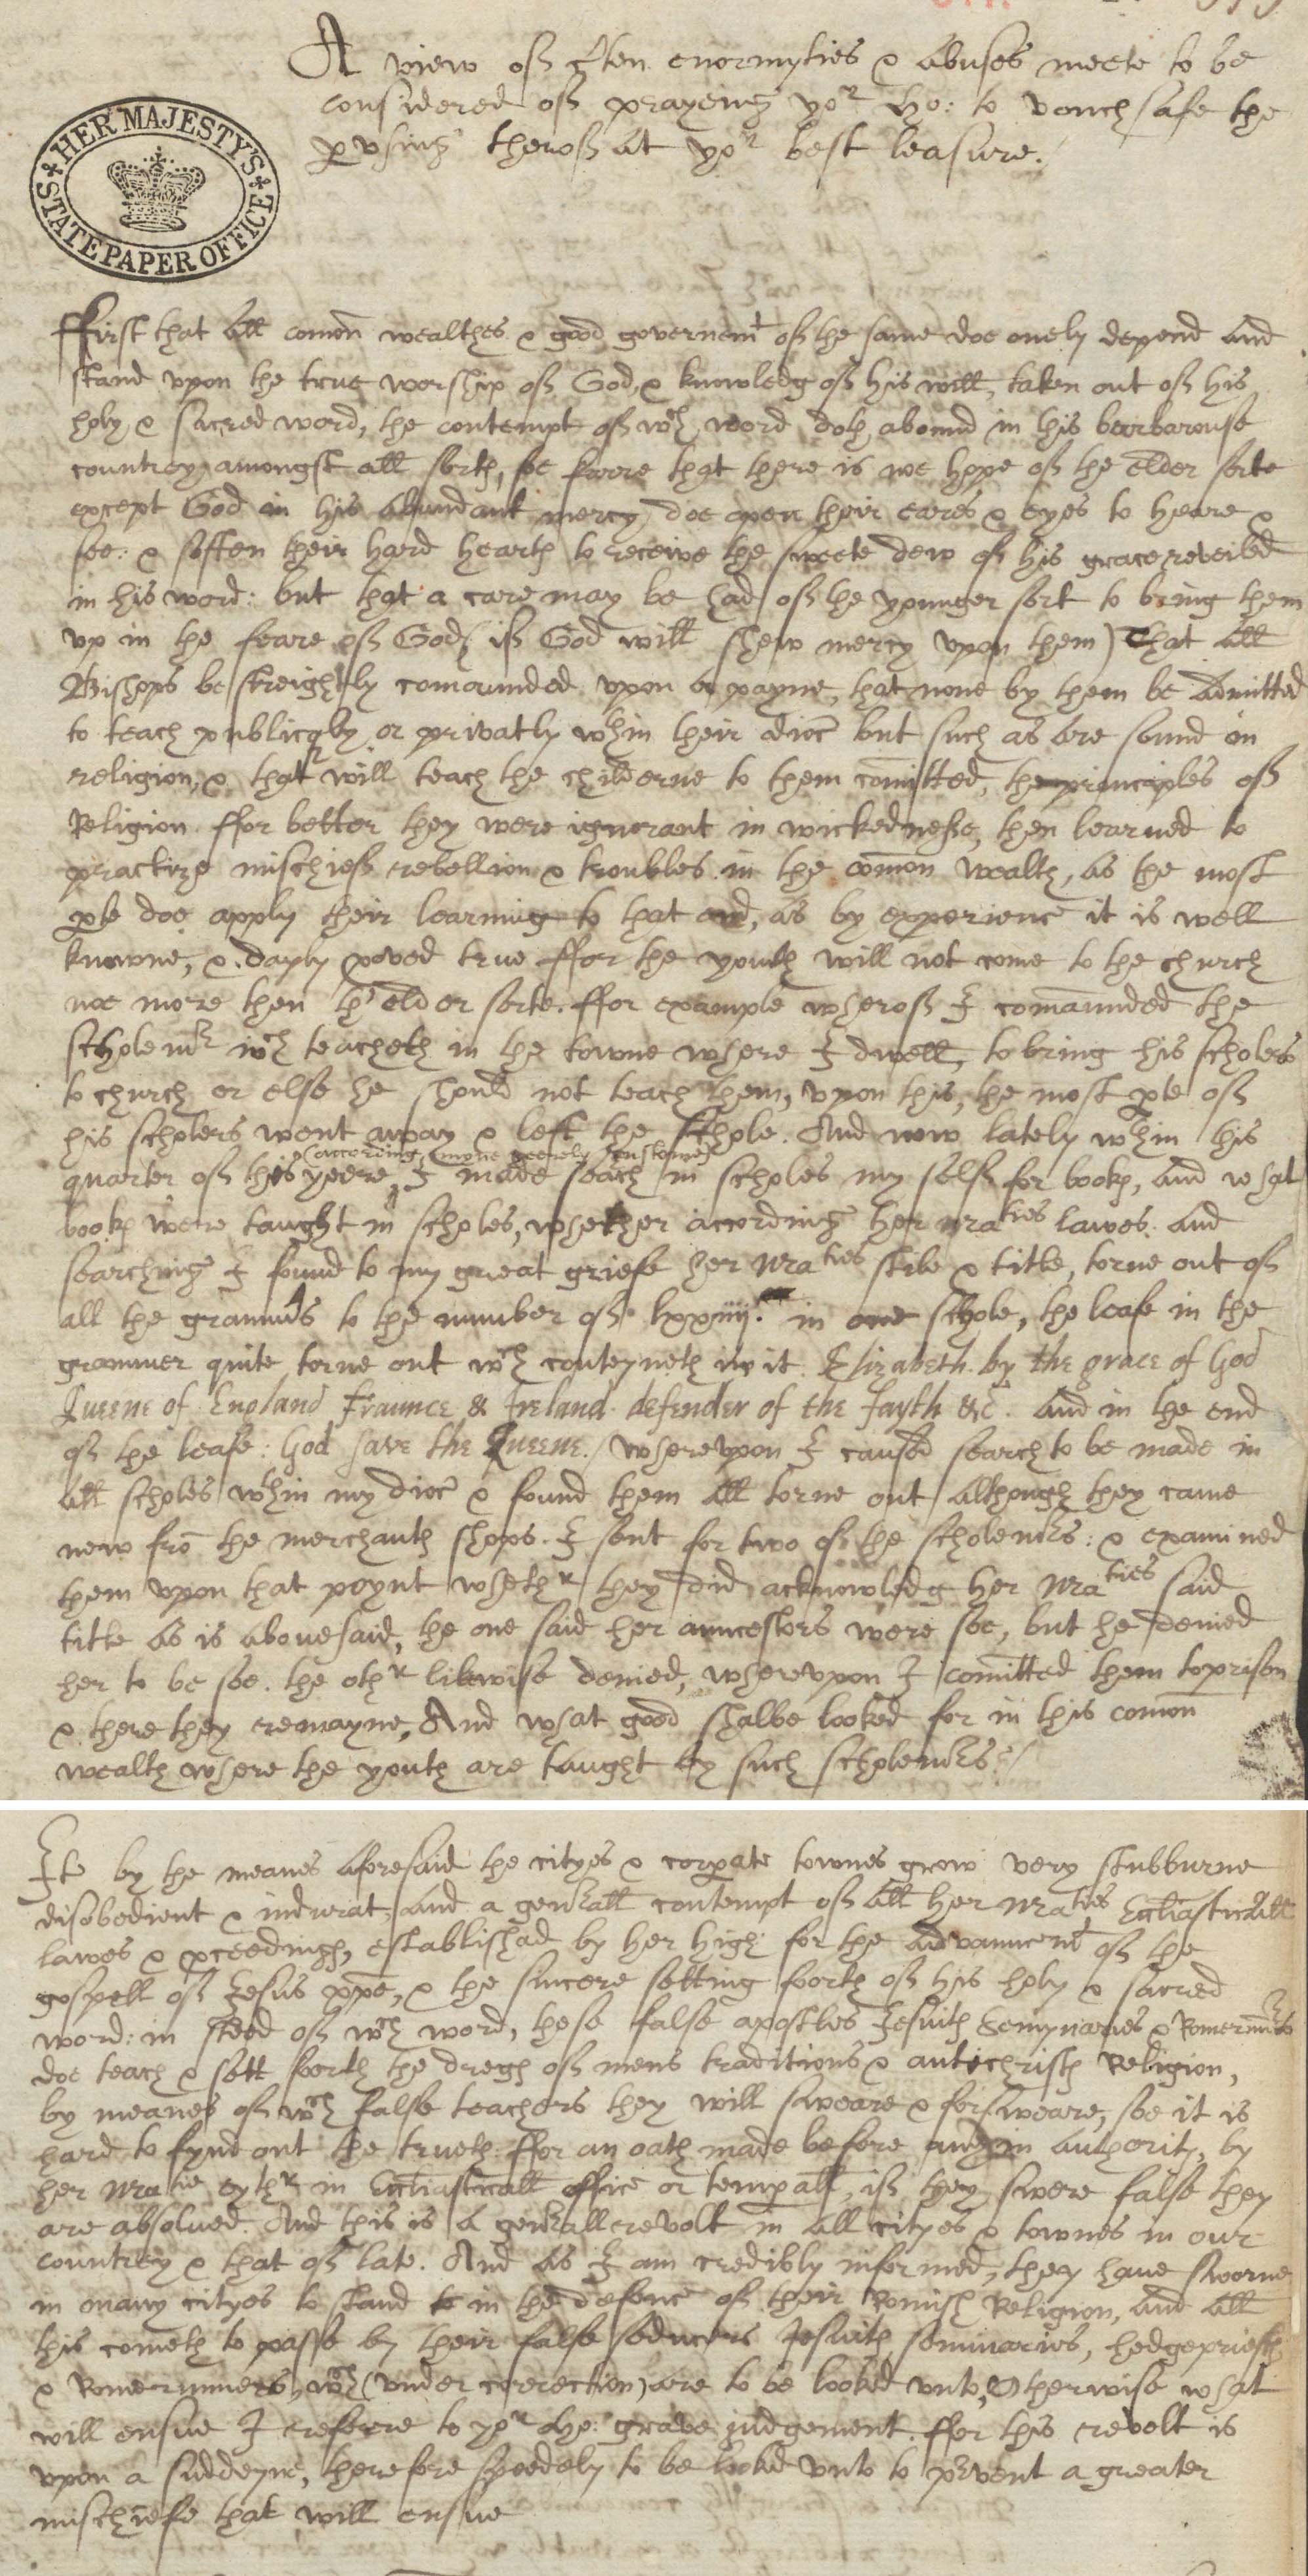 A view of c'ten enormyties & abuses meete to be
considered of prayeing yor Ho: to vouchsafe the
p'vsing therof at yor best leasure./
HER MAJESTY'S
STATE PAPER OFFICE
ffirst that all comon wealthes & good governemt of the same doe onely depend and
stand vpon the true worship of God, & knowledg of his will, taken out of his
holy & sacred word, the contempt of wch word doth abound in this barbarouse
countrey amongst all sorts, soe farre that there is noe hope of the elder sorte
except God in his abundant mercy doe open their eares & eyes to heare &
see: & soften their hard hearts to receive the sweete dew of his grace reveiled
in his word: but that a care may be had of the younger sort to bring them
vp in the feare of God (if God will shew mercy vpon them) That all
Bishops be streightly comaunded vpon a payne, that none by them be admitted
to teach publicqly or privatly wthin their dioc' but such as are sound in
religion, & that will teach the childerne to them comitted, the principles of
Religion ffor better they were ignorant in wickednesse, then learned to
practize mischief rebellion & troubles in the comon wealth, as the most
p'te doe apply their learning to that end, as by experience it is well
knowne, & dayly p'oved true ffor the youth will not come to the church
noe more then th' elder sorte. ffor example wherof I comaunded the
scholemr wch teacheth in the towne where I dwell, to bring his scholers
to church or else he should not teach them, vpon this, the most p'te of
his scholers went away & left the schole. And now lately wthin this
(according myne yeerely custome)
quarter of this yeere, I made seach in scholes my self for books, and what
books were taught in scholes, whether according her maties lawes. and
searching I found to my great griefe her Maties stile & title, torne out of
all the gramars to the number of lxxiiij. in one schole, the leafe in the
grammer quite torne out wch conteyneth in it. Elizabeth by the grace of God
Queene of England Fraunce & Ireland defender of the fayth &c. And in the end
of the leafe: God save the Queene./ Wherevpon I caused search to be made in
all scholes wthin my dioc' & found them all torne out although they came
new fro the merchants shops. I sent for two of the scholemrs: & examined
them vpon that poynt whethr they did acknowledg her Maties said
title as is abouesaid, the one said her auncestors were soe, but he denied
her to be soe. the othr likewise denied, wherevpon I comitted them to prison
& there they remayne, And what good shalbe looked for in this comon
wealth where the youth are taught by such scholemrs?/
Ite by the meanes aforesaid the cityes & corporate townes grow very stubburne
disobedient & indurat, and a gen'all contempt of all her Maties Eccliasticall
lawes & p'ceedings, established by her High: for the advauncemt of the
gospell of Jesus xpe, & the sincere setting foorth of his holy & sacred
word: in steed of wch word, these false apostles Jesuits Semynaries & Romerunrs
doe teach & sett foorth the dregs of mens traditions & antichrists Religion,
by meanes of wch false teachers they will sweare & forsweare, soe it is
hard to fynd out the trueth. ffor an oath made before any in authority, by
her Matie eythr in Eccliasticall office or temp'all, if they swere false they
are absolued. And this is a gen'all revolt in all cityes & townes in our
countrey & that of late. And as I am credibly informed, they haue sworne
in many cityes to stand to in the defence of their Romish Religion, and all
this cometh to passe by their false seducers Jesuits seminaries, hedgepriests
& Romerunners, wch (vnder correction) are to be looked vnto, Otherwise what
will ensue I referre to yor Ho: grave iudgement. ffor this revolt is
vpon a suddeyne, therefore speedely to be looked vnto to p'vent a greater
mischiefe that will ensue